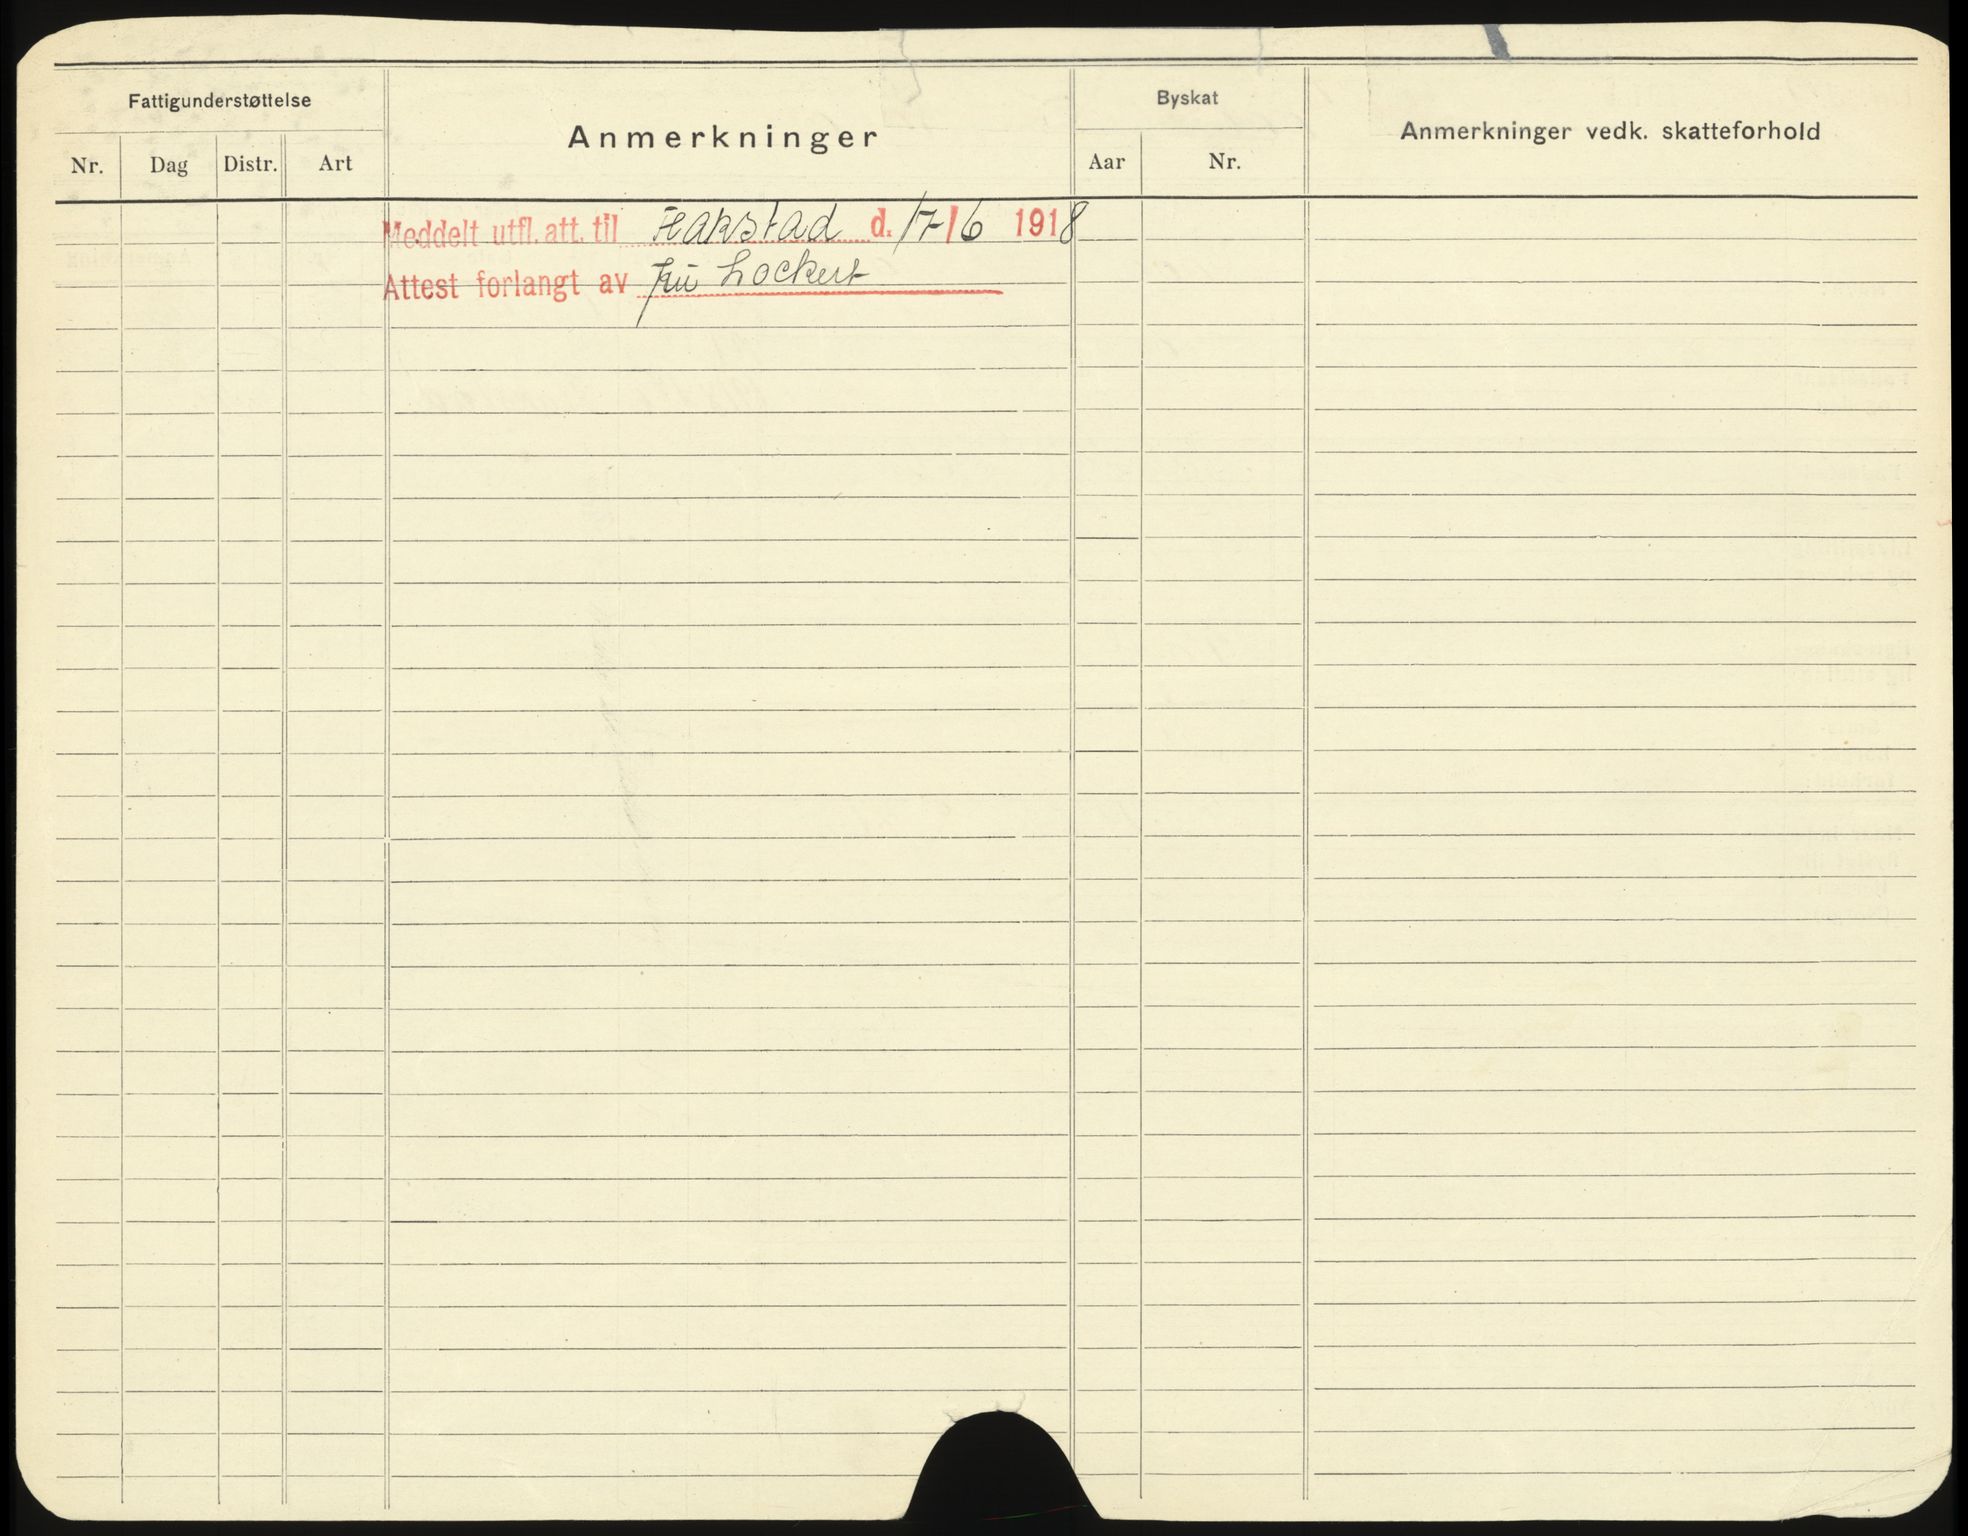 Fattigunderstøttelse
Anmerkninger
Byskat
Anmerkninger vedk. skatteforhold
Nr. Dag Distr. Art
Aar Nr.
Meddelt utfl. att. til Hakstad d. 17/6 1918
Attest forlangt av fru Lockert